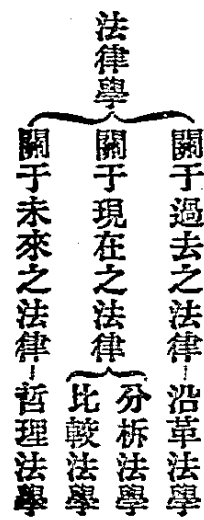 法律學
關于過去之法律—沿革法學
關于現在之法律
分析法學
比較法學
關于未來之法律—哲理法學